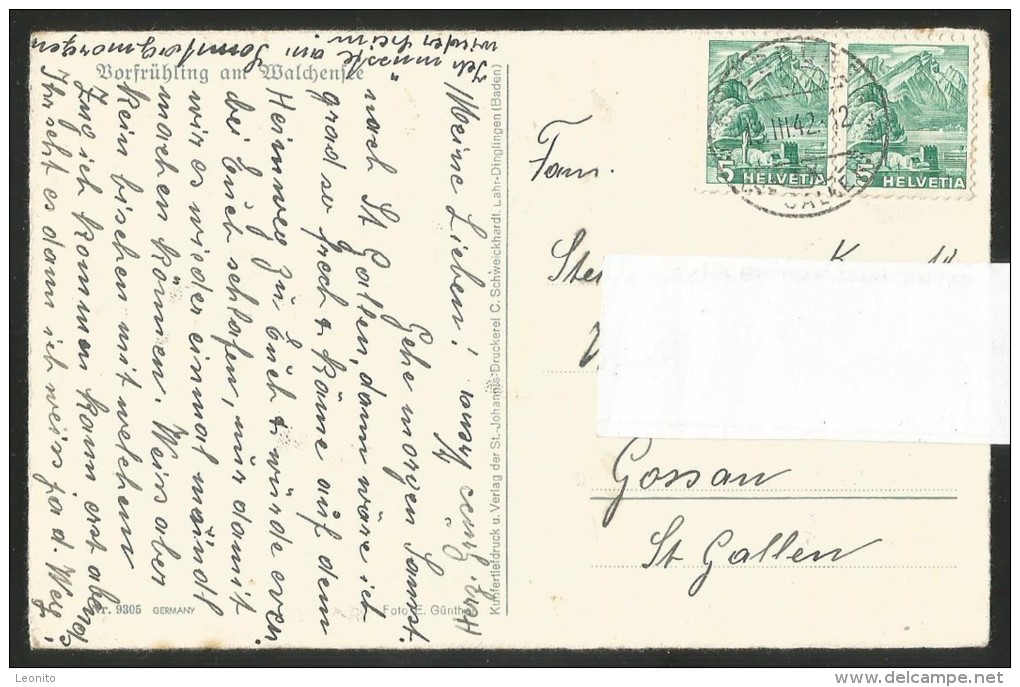 Vorfrühling am Walchensee
Meine Lieben!
Gehe morgen Samst.
nach St Gallen, dann wäre ich
grad so frech & käme auf dem
Heimweg zu Euch & würde even.
bei Euch schlafen, nur damit
wir es wieder einmal
machen können. Weiss aber
kein bischen mit welchem
Zug ich kommen kann erst abends
Ihr seht es dann ich weiss ja d. Weg!
Ich müsste am Sonntagmorgen
wieder heim
Herzl. Grüsse
Nr. 9305 GERMANY
Foto E. Günther
Kupfertiefdruck u. Verlag der St.-Johannis-Druckerei C. Schweickhardt, Lahr-Dinglingen (Baden)
5 HELVETIA
5 HELVETIA
III 42. 12
GALLEN
Fam.
Gossau
St Gallen
Leonito
www.delcampe.net